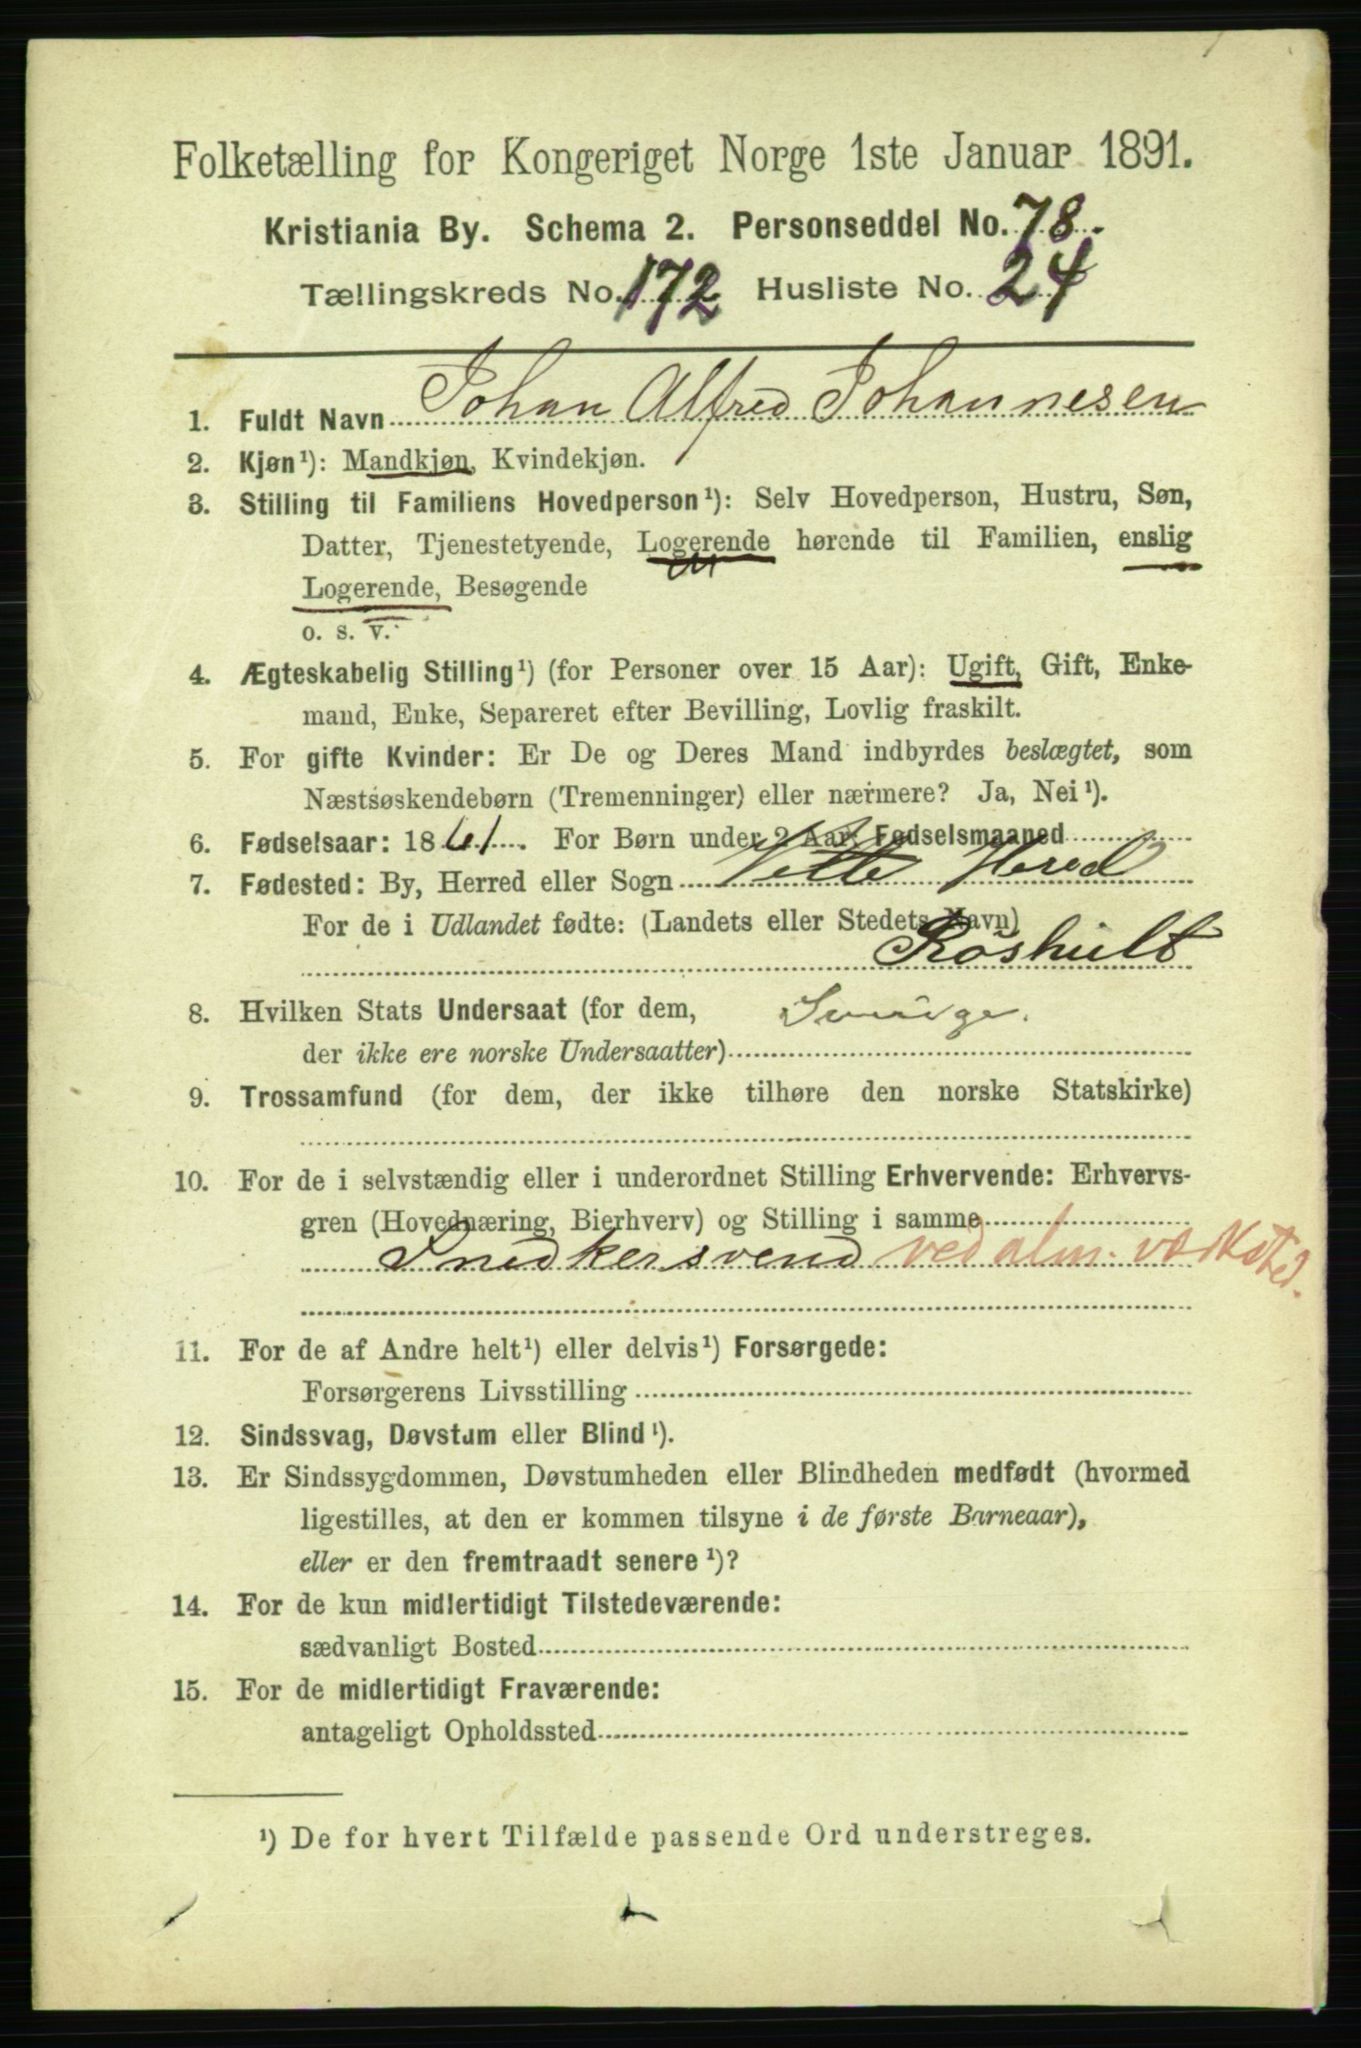 Folketælling for Kongeriget Norge 1ste Januar 1891.
Kristiania By. Schema 2. Personseddel No. 78.
Tællingskreds No. 172 Husliste No. 24
1. Fuldt Navn Johan Alfred Johannesen
2. Kjøn¹): Mandkjøn, Kvindekjøn.
3. Stilling til Familiens Hovedperson¹): Selv Hovedperson, Hustru, Søn,
Datter, Tjenestetyende, Logerende hørende til Familien, enslig
Logerende, Besøgende
o. s. v.
4. Ægteskabelig Stilling¹) (for Personer over 15 Aar): Ugift, Gift, Enke-
mand, Enke, Separeret efter Bevilling, Lovlig fraskilt.
5. For gifte Kvinder: Er De og Deres Mand indbyrdes beslægtet, som
Næstsøskendebørn (Tremenninger) eller nærmere? Ja, Nei¹).
6. Fødselsaar: 1861. For Børn under 2 Aar: Fødselsmaaned
7. Fødested: By, Herred eller Sogn Vette Herred
For de i Udlandet fødte: (Landets eller Stedets Navn)
Röshult
8. Hvilken Stats Undersaat (for dem, Sverige.
der ikke ere norske Undersaatter)
9. Trossamfund (for dem, der ikke tilhøre den norske Statskirke)
10. For de i selvstændig eller i underordnet Stilling Erhvervende: Erhvervs-
gren (Hovednæring, Bierhverv) og Stilling i samme
Snedkersvend ved alm. værksted.
11. For de af Andre helt¹) eller delvis¹) Forsørgede:
Forsørgerens Livsstilling
12. Sindssvag, Døvstum eller Blind¹).
13. Er Sindssygdommen, Døvstumheden eller Blindheden medfødt (hvormed
ligestilles, at den er kommen tilsyne i de første Barneaar),
eller er den fremtraadt senere¹)?
14. For de kun midlertidigt Tilstedeværende:
sædvanligt Bosted
15. For de midlertidigt Fraværende:
antageligt Opholdssted
¹) De for hvert Tilfælde passende Ord understreges.